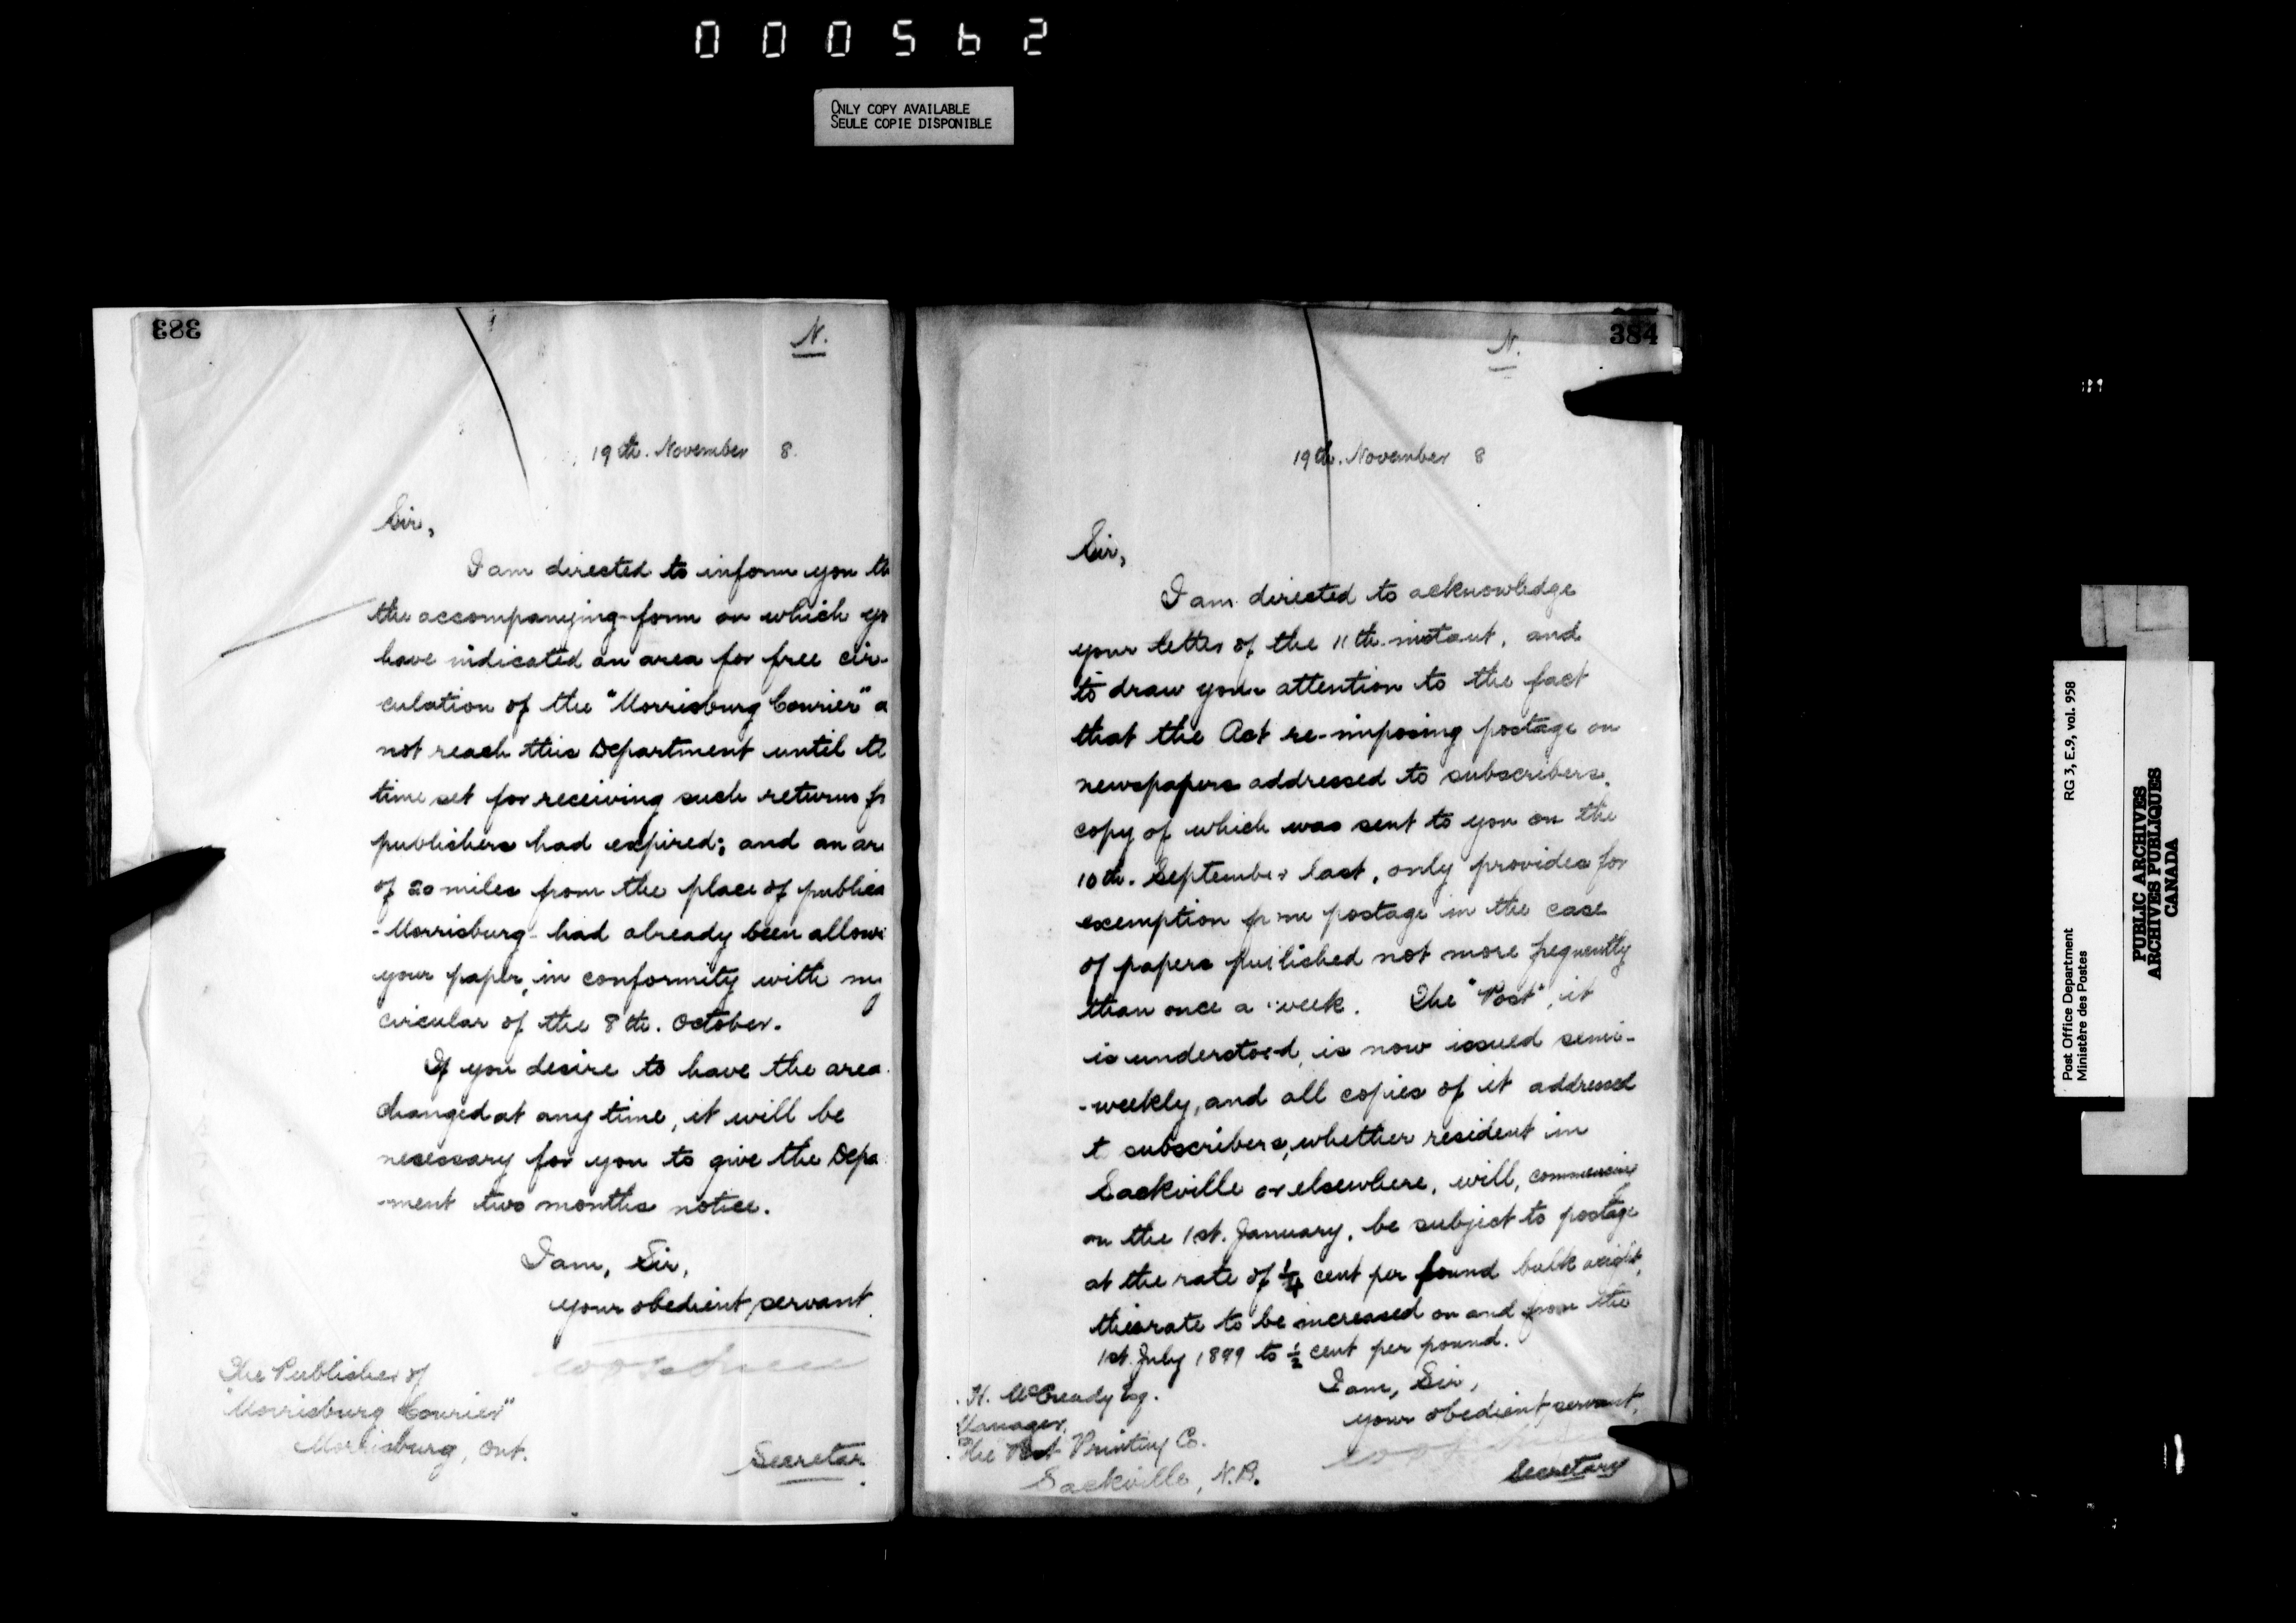 000562
ONLY COPY AVAILABLE
SEULE COPIE DISPONIBLE
383
N.
19th. November 8.
Sir,
I am directed to inform you th
the accompanying form on which yo
have indicated an area for free cir-
culation of the "Morrisburg Courier" d
not reach this Department until th
time set for receiving such returns fr
publishers had expired; and an are
of 20 miles from the place of publica
-Morrisburg- had already been allowe
your paper, in conformity with my
circular of the 8th. October.
If you desire to have the area
changed at any time, it will be
necessary for you to give the Depa
-ment two months notice.
I am, Sir,
your obedient servant.
The Publisher of
"Morrisburg Courier"
Morrisburg, Ont.
Secretar
384
N.
19th. November 8
Sir,
I am directed to acknowledge
your letter of the 11th. instant, and
to draw your attention to the fact
that the Act re-imposing postage on
newspapers addressed to subscribers,
copy of which was sent to you on the
10th. September last, only provides for
exemption from postage in the case
of papers published not more frequently
than once a week. The "Post", it
is understood, is now issued semi-
-weekly, and all copies of it addressed
t subscribers, whether resident in
Sackville or elsewhere, will, commencing
on the 1st. January, be subject to postage
at the rate of 1/4 cent per pound bulk weight,
this rate to be increased on and from the
1st. July 1899 to 1/2 cent per pound.
I am, Sir,
your obedient servant,
H. McCready Esq.
Manager,
The Post Printing Co.
Sackville, N.B.
Secretary
Post Office Department RG 3, E.9, vol. 958
Ministère des Postes
PUBLIC ARCHIVES
ARCHIVES PUBLIQUES
CANADA